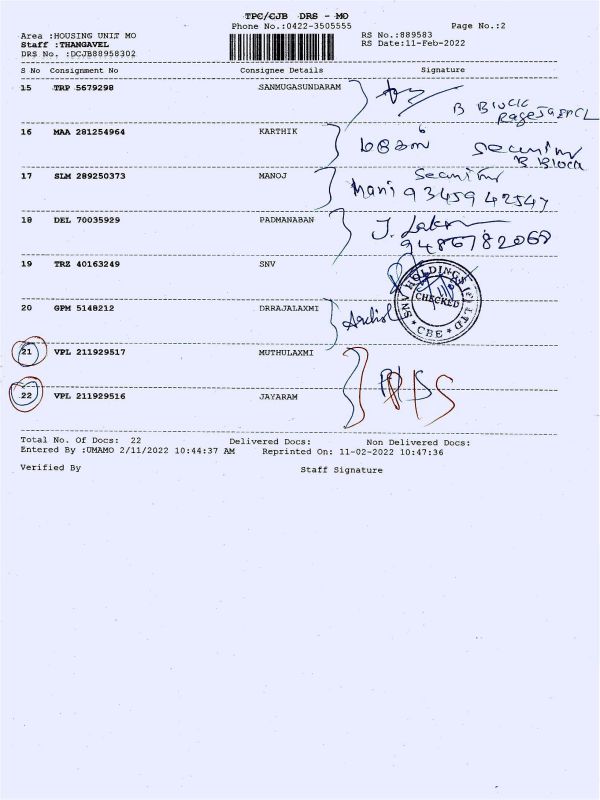 TPC/CJB DRS - MO
Phone No.:0422-3505555
Page No.:2
Area :HOUSING UNIT MO
RS No.:889583
Staff :THANGAVEL
RS Date:11-Feb-2022
DRS No. :DCJB88958302
S No Consignment No Consignee Details Signature
15 TRP 5679298 SANMUGASUNDARAM
B Block
16 MAA 281254964 KARTHIK
Security
B Block
17 SLM 289250373 MANOJ
Security
Mani 9345942547
18 DEL 70035929 PADMANABAN
J. Lakm
9486782068
19 TRZ 40163249 SNV
SNV HOLDINGS (P) LTD
CHECKED
* CBE *
20 GPM 5148212 DRRAJALAXMI
21 VPL 211929517 MUTHULAXMI
22 VPL 211929516 JAYARAM
Total No. Of Docs: 22 Delivered Docs: Non Delivered Docs:
Entered By :UMAMO 2/11/2022 10:44:37 AM Reprinted On: 11-02-2022 10:47:36
Verified By Staff Signature